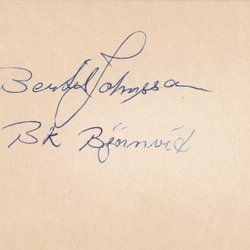 Bertil Johnsson
BK Björnvid